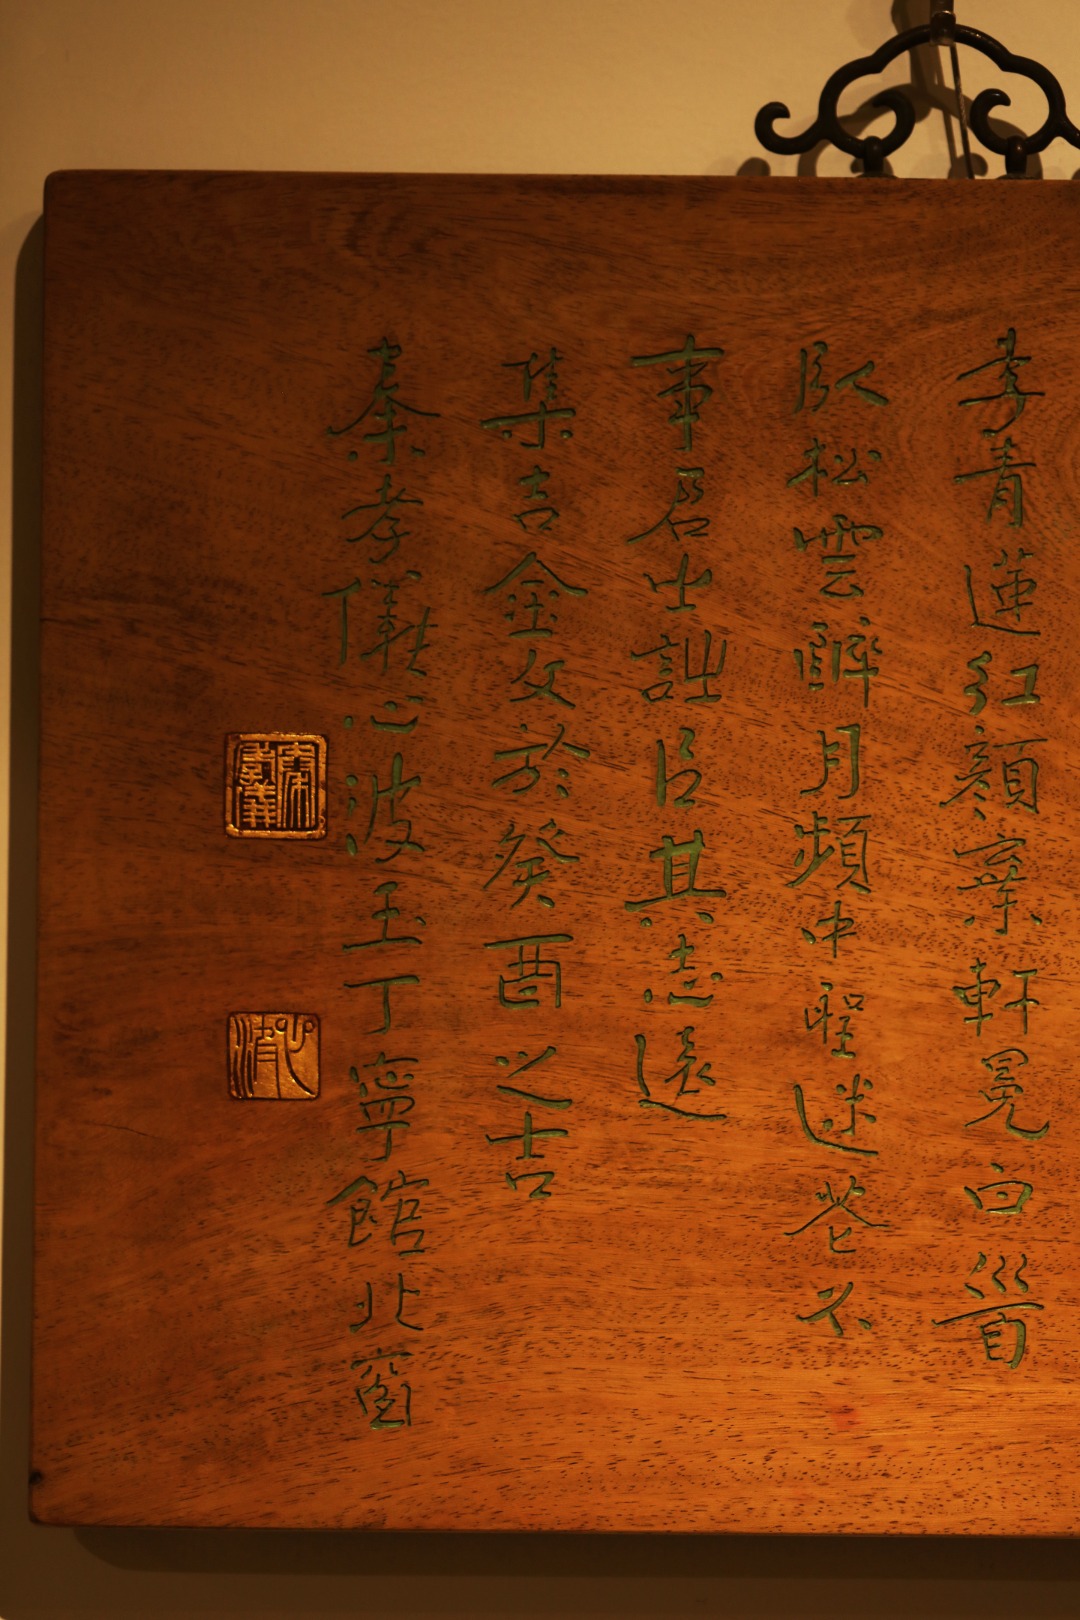 李青蓮紅顏棄軒冕白首
臥松雲醉月頻中聖迷花不
事君士詘㠯其志遠
集吉金文於癸酉之吉
秦孝儀心波玉丁寧館北窗
秦孝儀
心波